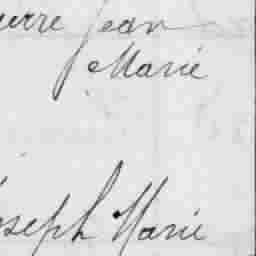 ierre Jean
Marie
oseph Marie